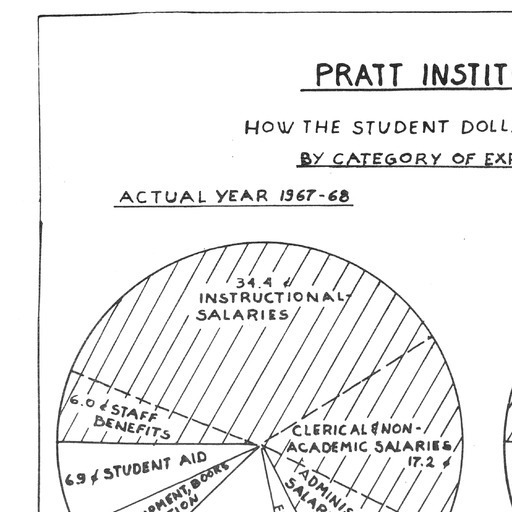 PRATT INSTIT
HOW THE STUDENT DOLL
BY CATEGORY OF EXP
ACTUAL YEAR 1967-68
34.4 ¢
INSTRUCTIONAL-
SALARIES
6.0 ¢ STAFF
BENEFITS
CLERICAL & NON-
ACADEMIC SALARIES
17.2 ¢
6.9 ¢ STUDENT AID
PMENT, BOOKS
TION
ADMINIS
SALAR